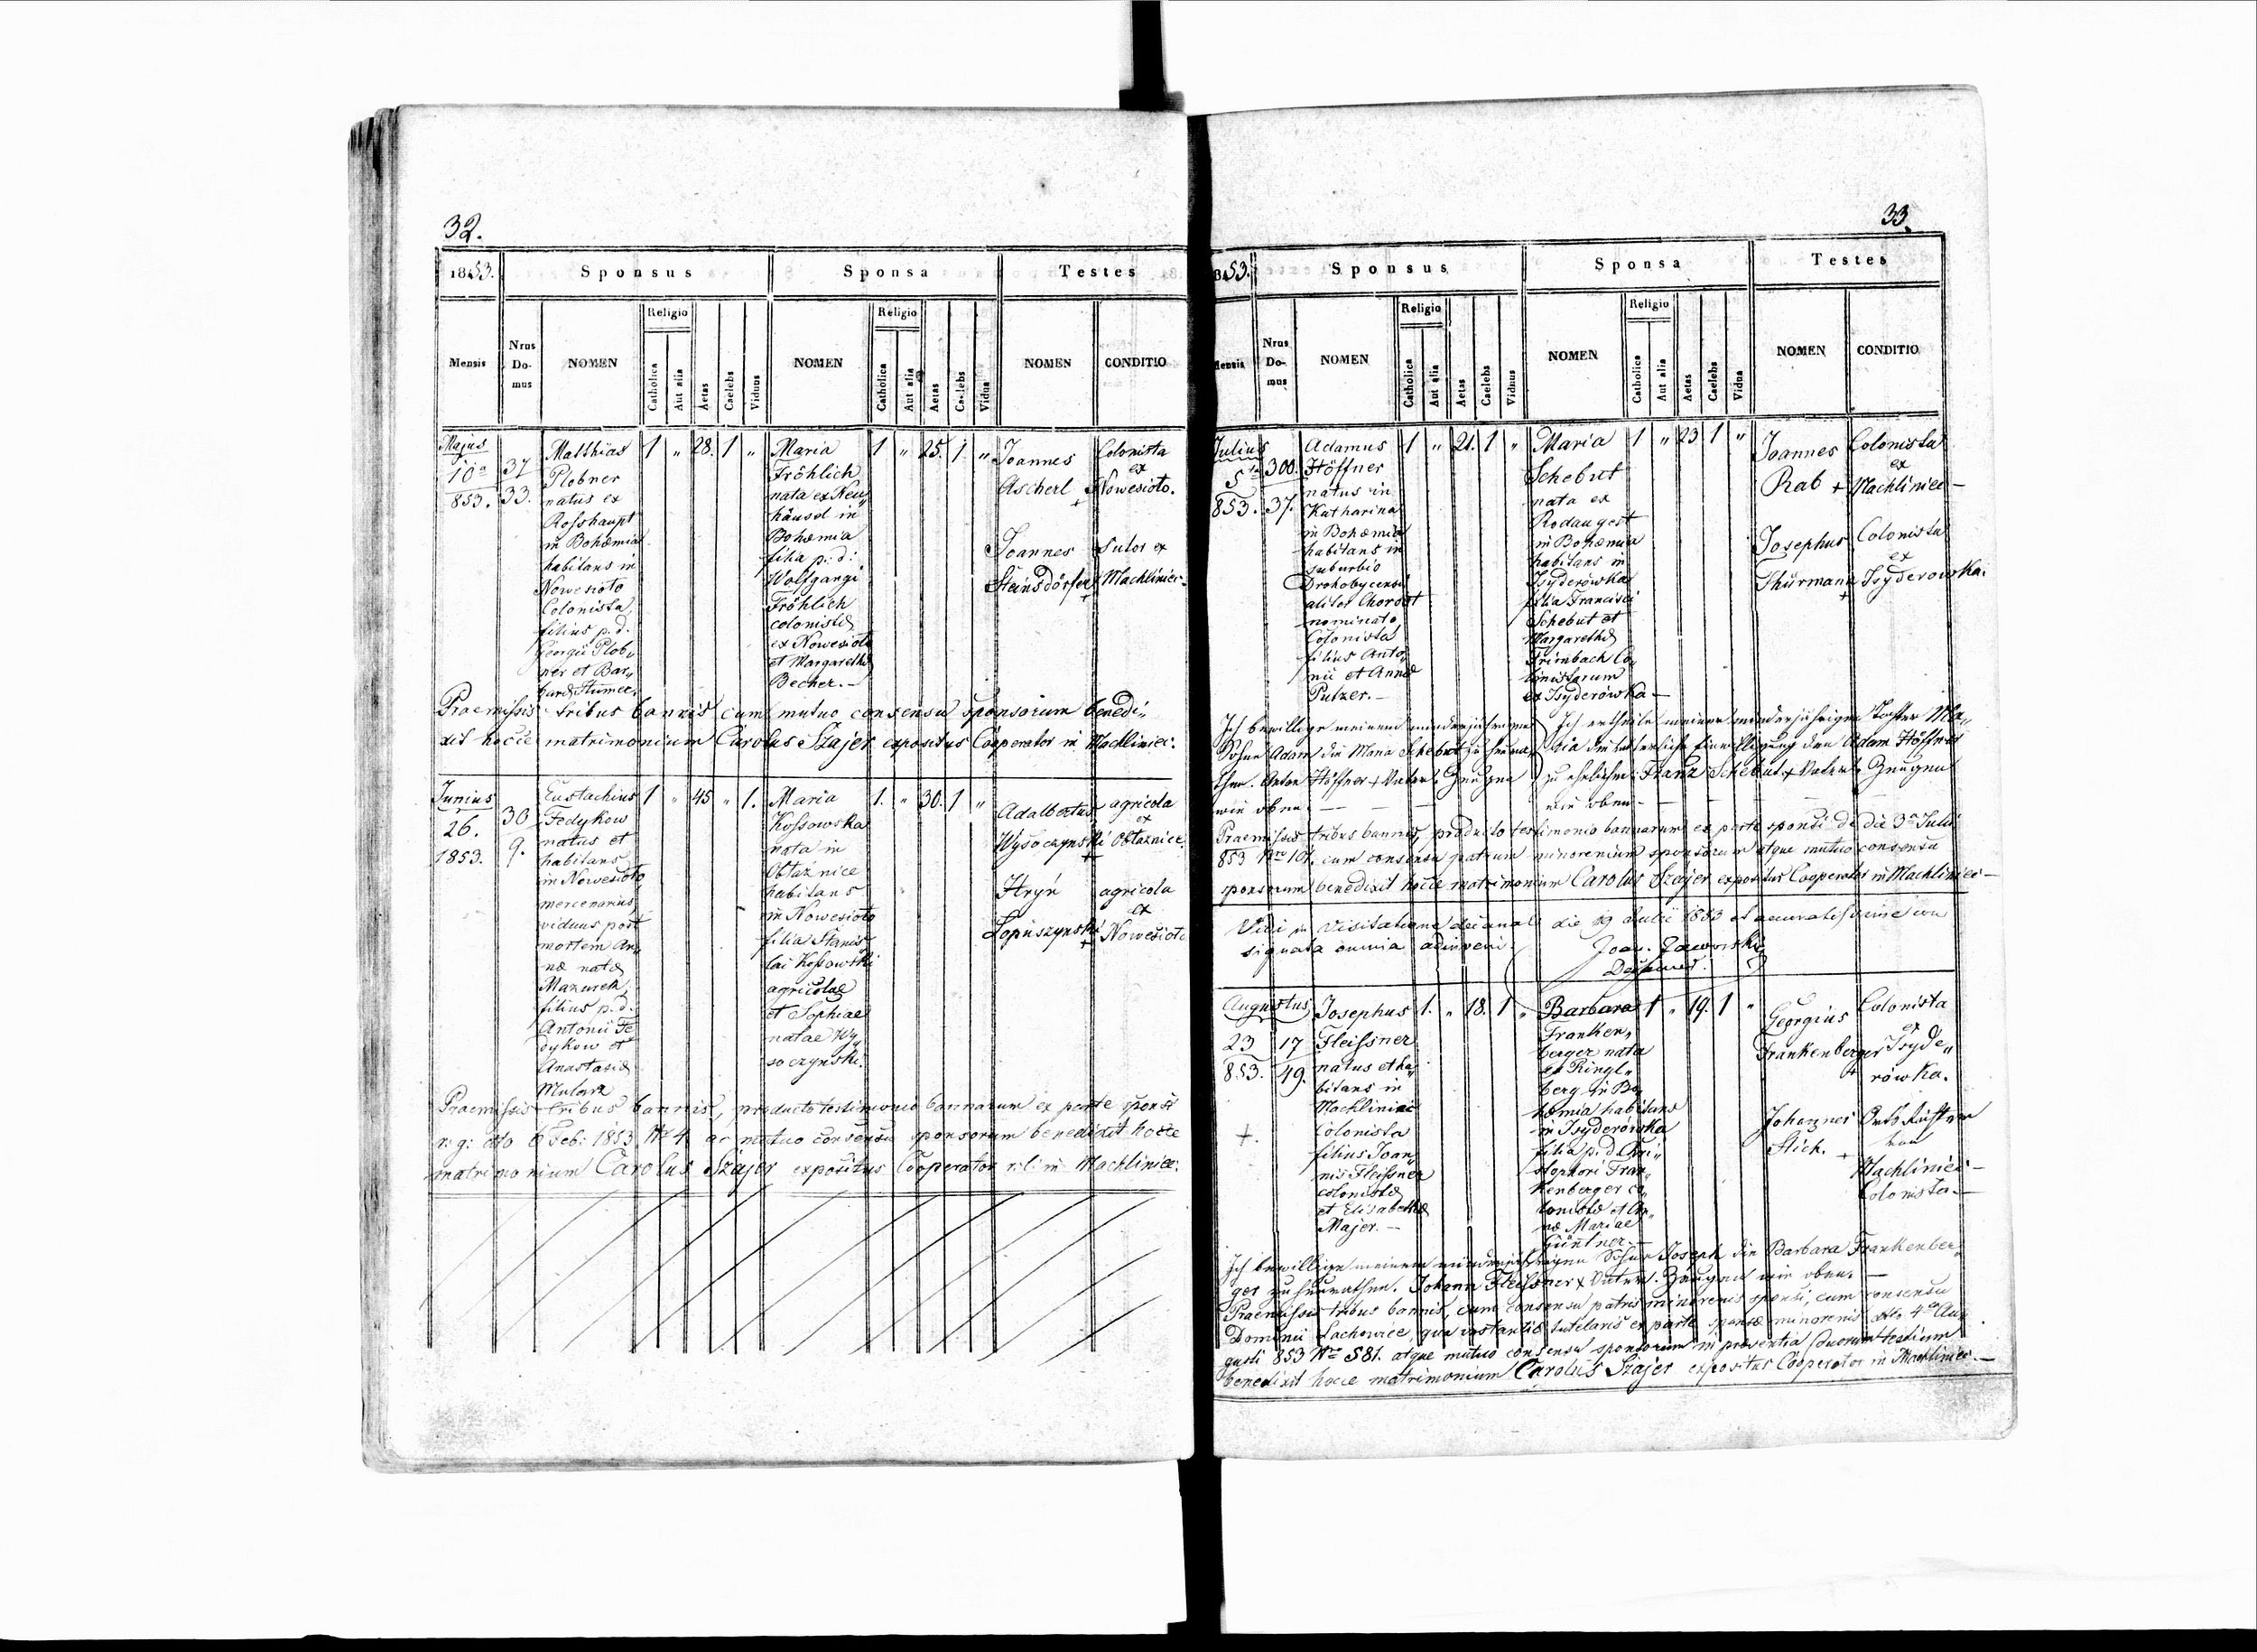 32.
1853. Sponsus Sponsa Testes
Mensis Nrus Domus NOMEN Religio Catholica Aut alia Aetas Caelebs Viduus NOMEN Religio Catholica Aut alia Aetas Caelebs Vidua NOMEN CONDITIO
Majus
10a
853.
37
33.
Matthias
Plobner
natus ex
Rosshaupt
in Bohemia
habitans in
Nowesioło
Colonista,
filius p. d.
Georgii Plob„
ner et Bar„
1 „ 28. 1 „
Maria
Fröhlich
nata ex Neu„
häusel in
Bohemia
filia p. d.
Wolfgangi
Fröhlich
colonistæ
ex Nowesioło
et Margarethæ
Becher. —
1 „ 25. 1. „
Joannes
Ascherl +
Colonista
ex
Nowesioło.
Joannes
Steinsdörfer +
Sutor ex
Machliniec.
Praemissis tribus bannis cum mutuo consensu sponsorum benedi„
xit hocce matrimonium Carolus Szajer expositus Cooperator in Machliniec.
Junius
26.
1853.
30
9.
Eustachius
Fedykow
natus et
habitans
in Nowesioło
mercenarius,
viduus post
mortem An„
næ natæ
Mazurek,
filius p. d.
Antonii Fe
dykow et
Anastasiæ
Mularz
1 „ 45 „ 1.
Maria
Kossowska
nata in
Obłaznice
habitans
in Nowesioło
filia Stanis„
lai Kossowski
agricolae
et Sophiae
natae Wy„
soczynski.
1. „ 30. 1 „
Adalbertus
Wysoczynski +
agricola
ex
Obłaznice.
Hryń
Łopuszynski +
agricola
ex
Nowesioło
Praemissis tribus bannis, producto testimonio bannorum ex parte sponsi
r: g: dto 6 Feb: 1853 Nr 4 ac mutuo consensu sponsorum benedixit hocce
matrimonium Carolus Szajer expositus Cooperator r. l. in Machliniec.
33.
1853. Sponsus Sponsa Testes
Mensis Nrus Domus NOMEN Religio Catholica Aut alia Aetas Caelebs Viduus NOMEN Religio Catholica Aut alia Aetas Caelebs Vidua NOMEN CONDITIO
Julius
5ta
853.
300.
37.
Adamus
Höffner
natus in
Katharina
in Bohemia
habitans in
suburbio
Drohobycensi
aliter Chorost
nominato,
Colonista
filius Anto„
nii et Annæ
Putzer. —
1 „ 21. 1 „
Maria
Schebut
nata ex
in Bohemia
habitans in
Isyderówka
filia Francisci
Schebut et
Margarethæ
Frimbach Co„
lonistarum
ex Isyderówka —
1 „ 23 1 „
Joannes
Rab +
Colonista
ex
Machliniec —
Josephus
Thürmann +
Colonista
ex
Isyderowka.
Ich bewillige meinem minderjährigen
Sohne Adam die Maria Schebut zu heura„
then. Anton Höffner + Vater. Zeugen
wie oben. — — —
Ich ertheile meiner minderjährigen Tochter Ma„
ria die väterliche Einwilligung den Adam Höffner
zu ehelichen. Franz Schebut + Vater. Zeugen
wie oben. —
Praemissis tribus bannis, producto testimonio bannorum ex parte sponsi de die 3a Julii
853 Nro 101. cum consensu patrum minorenium sponsorum atque mutuo consensu
sponsorum benedixit hocce matrimonium Carolus Szajer expositus Cooperator in Machliniec —
Vidi in Visitatione decanali die 19 Julii 1853 et accuratissime con
signata omnia adinveni.
Joan. Jaworski
Augustus
23
853.
+.
17
49.
Josephus
Fleissner
natus et ha„
bitans in
Machliniec
Colonista
filius Joan„
nis Fleissner
colonistæ
et Elisabethæ
Majer. —
1. „ 18. 1 „
Barbara
Franken„
berger nata
ex Ringl„
berg in Bo„
hemia habitans
in Isyderówka
filia p. d. Chri„
stophori Fran„
kenberger co„
lonistæ et An„
næ Mariae
Güntner. —
1 „ 19. 1 „
Georgius
Frankenberger +
Colonista
ex
Isyde„
rówka.
Johannes
Stich. +
von
Machliniec —
Colonista —
Ich bewillige meinem minderjährigen Sohne Joseph die Barbara Frankenber„
ger zu heurathen. Johann Fleissner + Vater. Zeugen wie oben. —
Praemissis tribus bannis, cum consensu patris minorenis sponsi, cum consensu
Dominii Lachowice, qua instantiæ tutelaris ex parte sponsæ minorenis dto 4a Au„
gusti 853 Nro 581. atque mutuo consensu sponsorum in præsentia duorum testium
benedixit hocce matrimonium Carolus Szajer expositus Cooperator in Machliniec. —